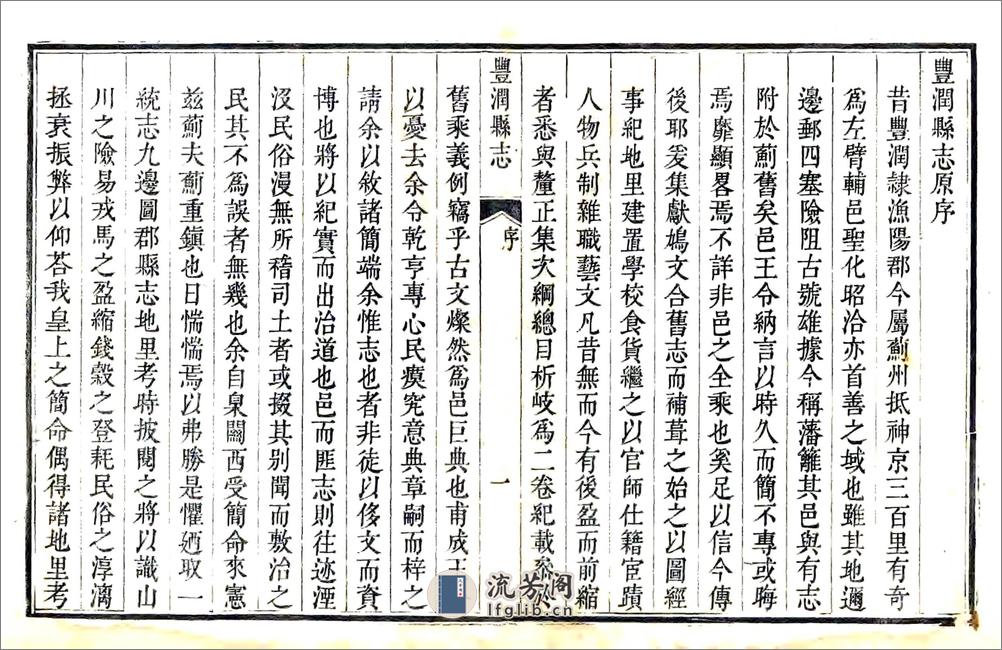 豐潤縣志原序
昔豐潤隸漁陽郡今屬薊州抵神京三百里有奇
為左臂輔邑聖化昭洽亦首善之域也雖其地邇
邊郵四塞險阻古號雄據今稱藩籬其邑與有志
附於薊舊矣邑王令納言以時久而簡不專或晦
焉靡顯畧焉不詳非邑之全乘也奚足以信今傳
後耶爰集獻鳩文合舊志而補葺之始之以圖經
事紀地里建置學校食貨繼之以官師仕籍宦蹟
人物兵制雜職藝文凡昔無而今有後盈而前縮
者悉與釐正集次綱總目析岐為二卷紀載叅
豐潤縣志
序
一
舊乘義例竊乎古文燦然為邑巨典也甫成王
以憂去余令乾亨專心民瘼究意典章嗣而梓之
請余以敘諸簡端余惟志也者非徒以侈文而資
博也將以紀實而出治道也邑而匪志則往迹湮
沒民俗漫無所稽司土者或掇其别聞而敷治之
民其不為誤者無幾也余自臬關西受簡命來憲
兹薊夫薊重鎮也日惴惴焉以弗勝是懼廼取一
統志九邊圖郡縣志地里考時披閱之將以識山
川之險易戎馬之盈縮錢穀之登耗民俗之淳漓
拯衰振弊以仰荅我皇上之簡命偶得諸地里考
流芳阁
lfglib.cn